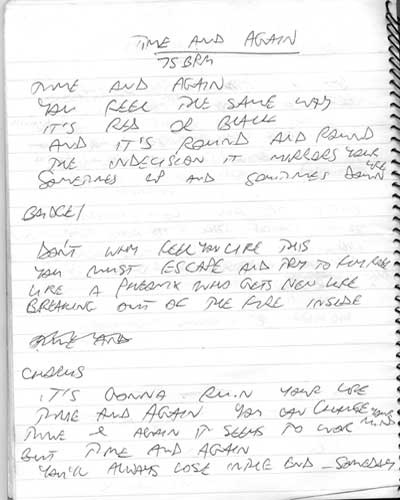 TIME AND AGAIN
75 BPM
TIME AND AGAIN
YOU FEEL THE SAME WAY
IT'S RED OR BLACK
AND IT'S ROUND AND ROUND
THE INDECISION IT MIRRORS YOUR LIFE
SOMETIMES UP AND SOMETIMES DOWN
DON'T WHY FEEL YOU LIKE THIS
YOU MUST ESCAPE AND TRY TO
LIKE A PHEONIX WHO GETS NEW LIFE
BREAKING OUT OF THE FIRE INSIDE
TIME AND
CHORUS
IT'S GONNA RUIN YOUR LIFE
TIME AND AGAIN YOU CAN CHANGE YOUR MIND
TIME & AGAIN IT SEEMS TO WORK
BUT TIME AND AGAIN
YOU'LL ALWAYS LOSE IN THE END - SOMEDAY